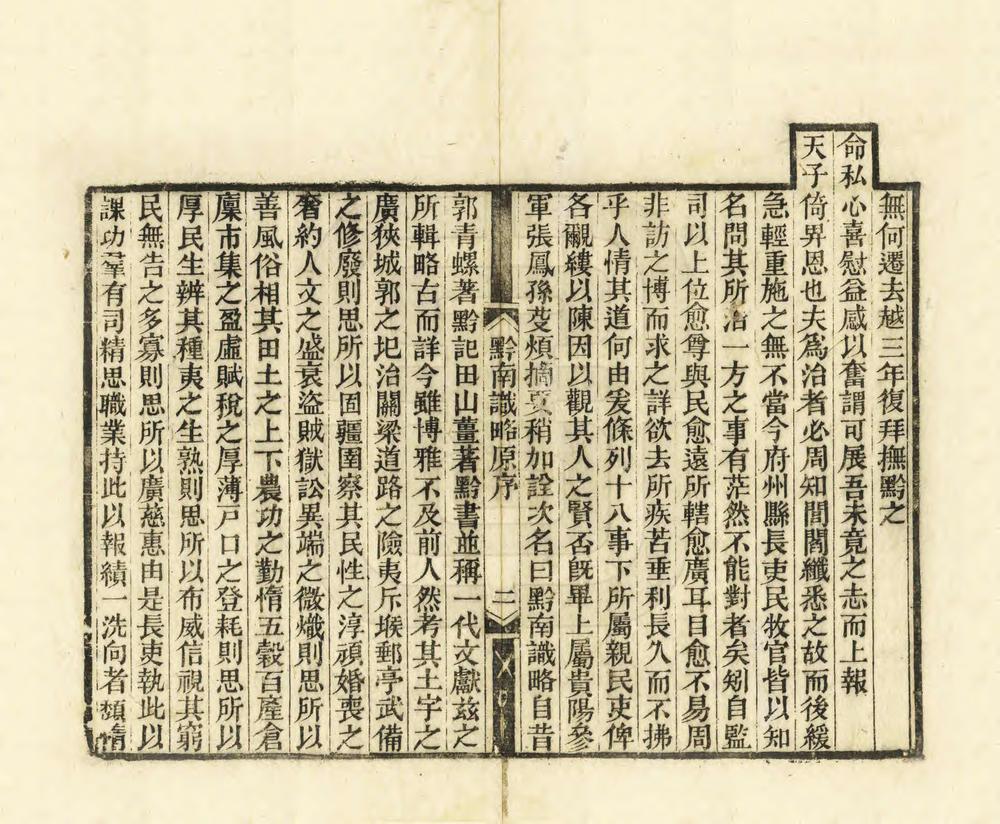 無何遷去越三年復拜撫黔之
命私心喜慰益感以奮謂可展吾未竟之志而上報
天子倚畀恩也夫爲治者必周知閭閻纖悉之故而後緩
急輕重施之無不當今府州縣長吏民牧官皆以知
名問其所治一方之事有茫然不能對者矣矧自監
司以上位愈尊與民愈遠所轄愈廣耳目愈不易周
非訪之博而求之詳欲去所疾苦垂利長久而不拂
乎人情其道何由爰條列十八事下所屬親民吏俾
各覼縷以陳因以觀其人之賢否旣畢上屬貴陽參
軍張鳳孫芟煩摘要稍加詮次名曰黔南識略自昔
黔南識略原序
二
郭青螺著黔記田山薑著黔書並稱一代文獻茲之
所輯略古而詳今雖博雅不及前人然考其土宇之
廣狹城郭之圮治關梁道路之險夷斥堠郵亭武備
之修廢則思所以固疆圉察其民性之淳頑婚喪之
奢約人文之盛衰盜賊獄訟異端之微熾則思所以
善風俗相其田土之上下農功之勤惰五穀百產倉
廩市集之盈虛賦稅之厚薄戸口之登耗則思所以
厚民生辨其種夷之生熟則思所以布威信視其窮
民無告之多寡則思所以廣慈惠由是長吏執此以
課功羣有司精思職業持此以報績一洗向者頹惰